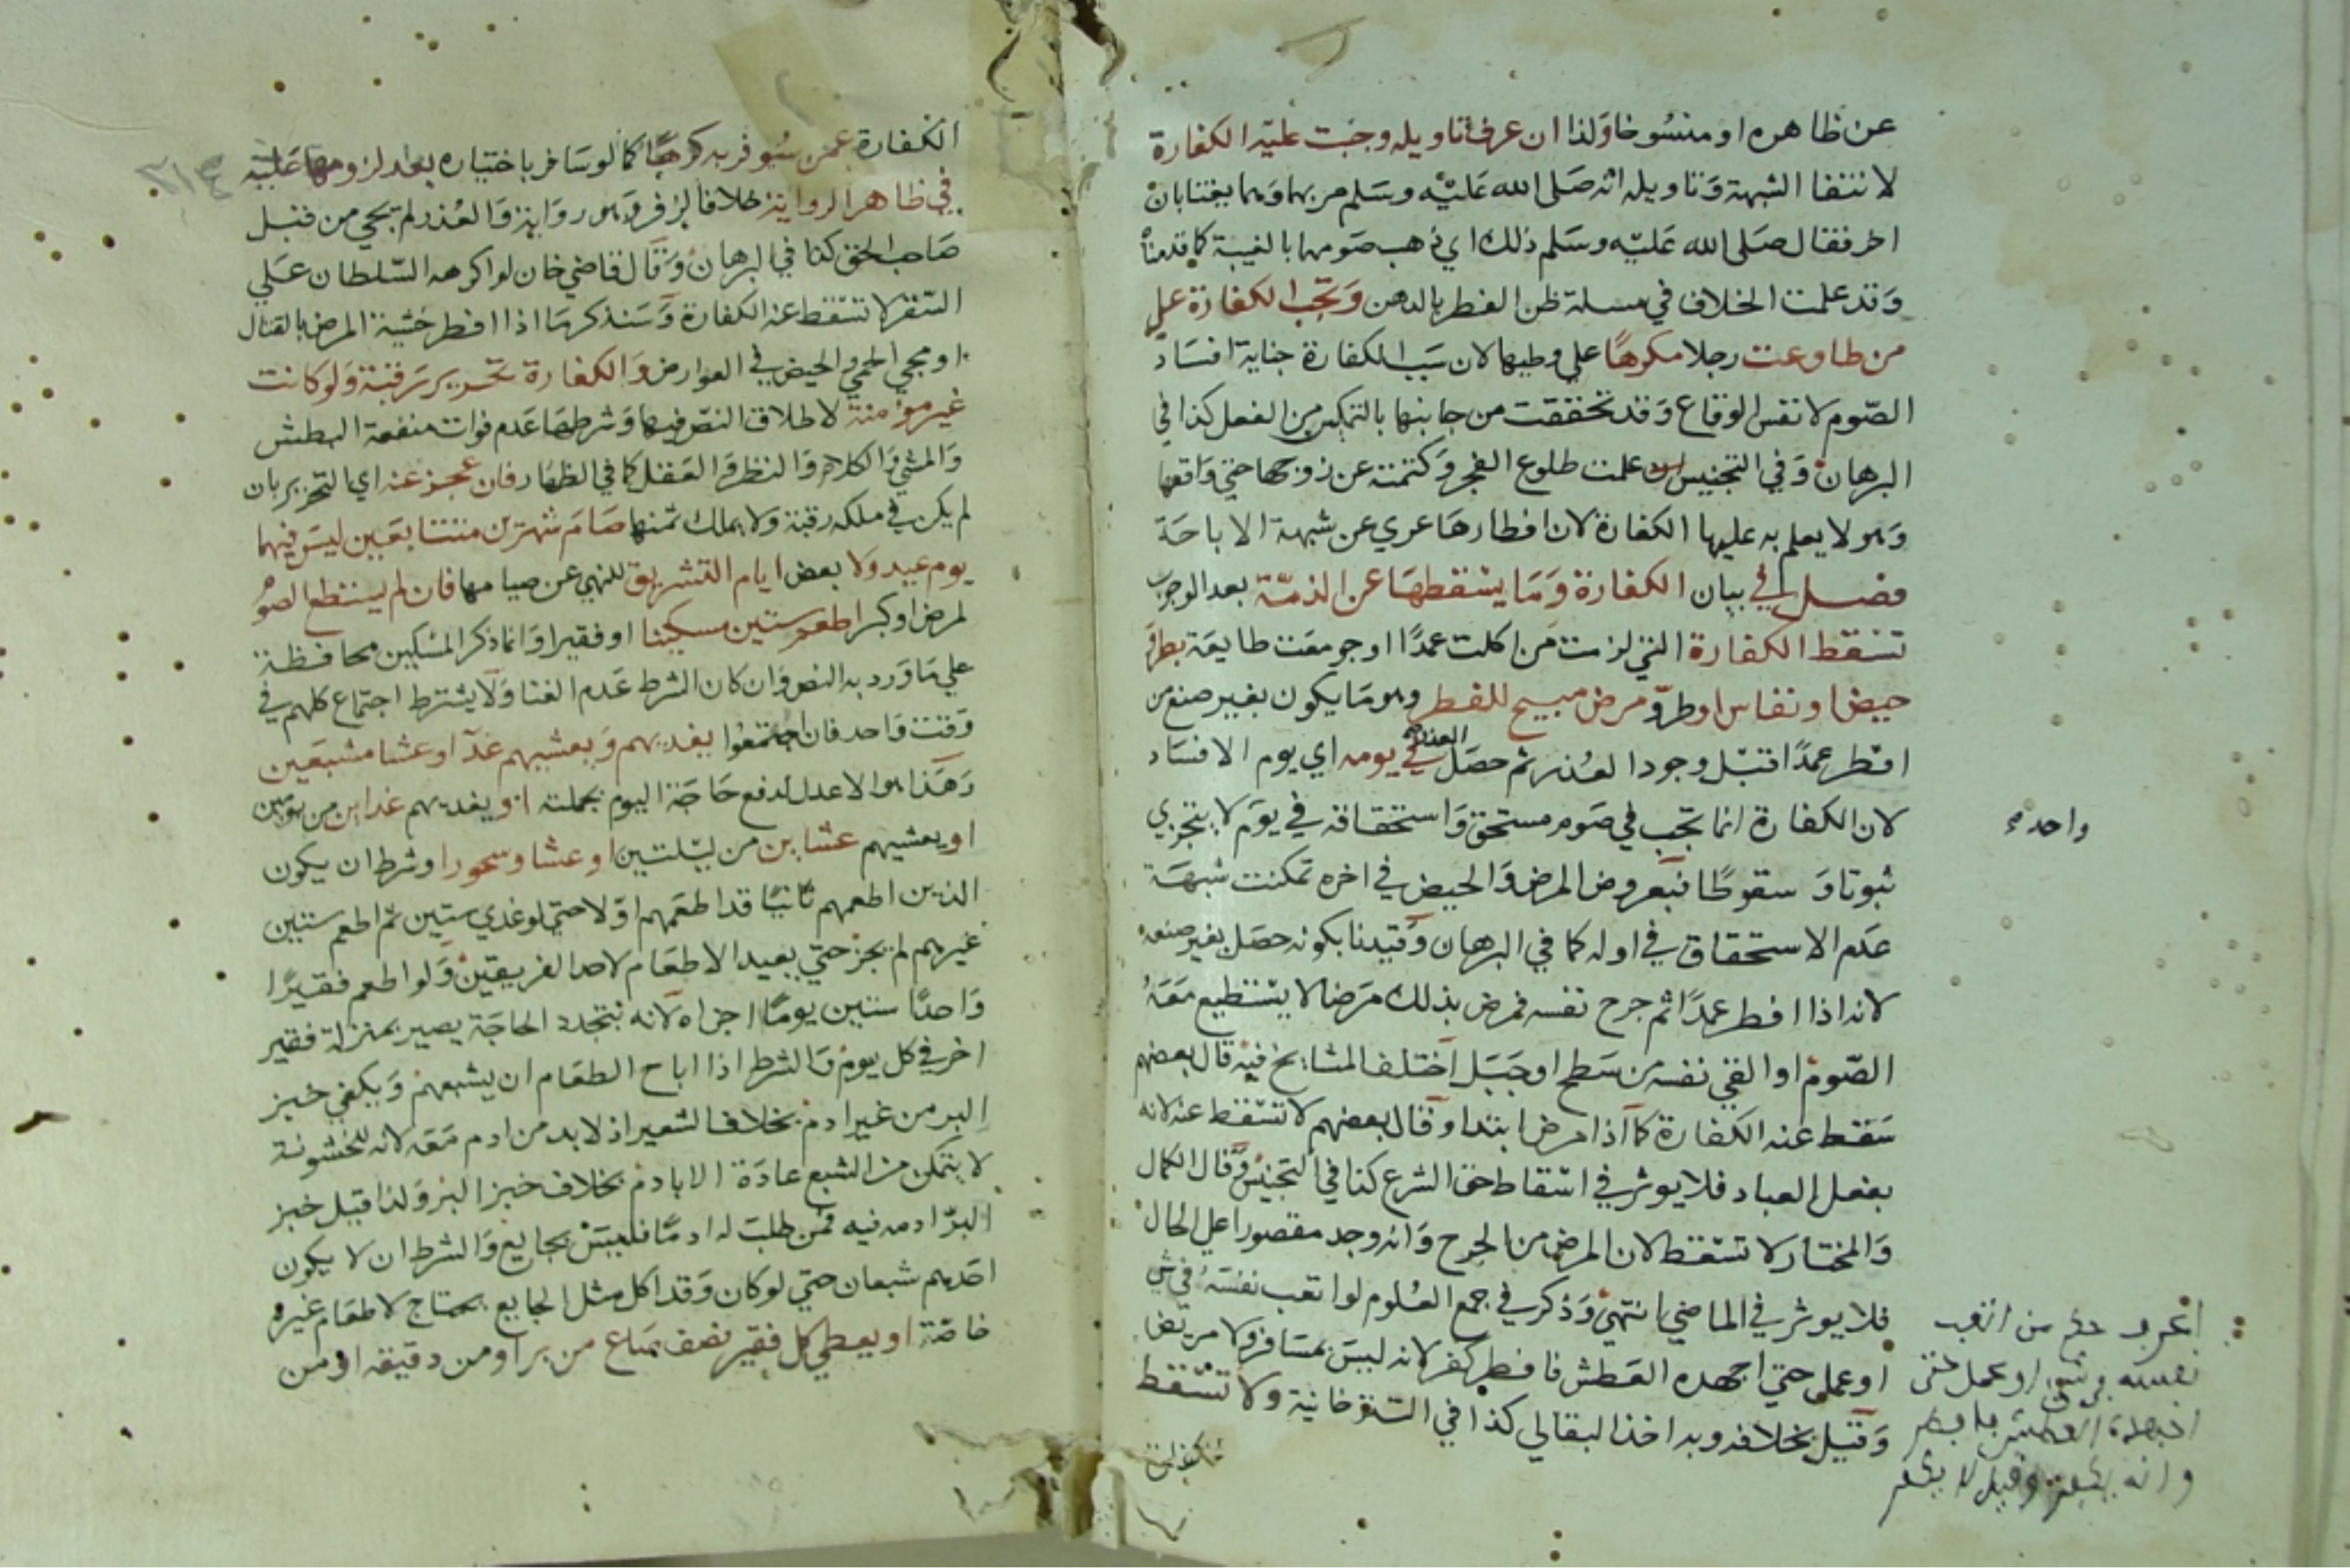 عن ظاهره او منسوخا ولذا ان عرف تاويله وجبت عليه الكفارة
لانتفا الشبهة وتاويله انه صلى الله عليه وسلم مر بهما وهما يغتابان
اخر فقال صلى الله عليه وسلم ذلك اي ذهب صومهما بالغيبة كما قدمناه
وقد علمت الخلاف في مسلة ظن الفطر بالدهن وتجب الكفارة على
من طاوعت رجلا مكرها على وطيها لان سبب الكفارة جناية افساد
الصوم لا نفس الوقاع وقد تحققت من جانبها بالتمكين من الفعل كذا في
البرهان وفي التجنيس علمت طلوع الفجر وكتمته عن زوجها حتى واقعها
وهو لا يعلم به عليها الكفارة لان افطارها عري عن شبهة الاباحة
فصل في بيان الكفارة وما يسقطها عن الذمة بعد الوجوب
تسقط الكفارة التي لزمت من اكلت عمدا او جومعت طايعة بطرو
حيض او نفاس او طرو مرض مبيح للفطر وهو ما يكون بغير صنع من
افطر عمدا قبل وجود العذر ثم حصل العذر في يومه اي يوم الافساد
لان الكفارة انما تجب في صوم مستحق واستحقاقه في يوم لا يتجزي
واحد
ثبوتا وسقوطا فبعروض المرض والحيض في اخره تمكنت شبهة
عدم الاستحقاق في اوله كما في البرهان وقيدنا بكونه حصل بغير صنعه
لانه اذا افطر عمدا ثم جرح نفسه فمرض بذلك مرضا لا يستطيع معه
الصوم او القي نفسه من سطح او جبل اختلف المشايخ فيه قال بعضهم
سقط عنه الكفارة كما اذا مرض ابتدا وقال بعضهم لا تسقط عنه لانه
بفعل العباد فلا يوثر في اسقاط حق الشرع كذا في التجنيس وقال الكمال
والمختار لا تسقط لان المرض من الجرح وانه وجد مقصورا على الحال
فلا يوثر في الماضي انتهى وذكر في جمع العلوم لو اتعب نفسه في شي
او عمل حتى اجهده العطش فافطر كفر لانه ليس بمسافر ولا مريض
وقيل بخلافه وبه اخذ البقالي كذا في التترخانية ولا تسقط
من اتعب
نفسه في شي او عمل حتى
اجهده العطش فافطر
وانه يكفر وقيل لا يكفر
الكفارة عمن سوفر به كرها كما لو سافر باختياره بعد لزومها عليه
في ظاهر الرواية خلافا لزفر وهو رواية والعذر لم يجي من قبل
صاحب الحق كذا في البرهان وقال قاضي خان لو اكرهه السلطان على
السفر لا تسقط عنه الكفارة وسنذكر ما اذا افطر خشية المرض بالقتال
او مجي الحمى والحيض في العوارض والكفارة تحرير رقبة ولو كانت
غير مومنة لاطلاق النص فيها وشرطها عدم فوات منفعة البطش
والمشي والكلام والنظر والعقل كما في الظهار فان عجز عنه اي التحرير بان
لم يكن في ملكه رقبة ولا يملك ثمنها صام شهرين متتابعين ليس فيهما
يوم عيد ولا بعض ايام التشريق للنهي عن صيامها فان لم يستطع الصوم
لمرض او كبر اطعم ستين مسكينا او فقيرا وانما ذكر المسكين محافظة
على ما ورد به النص وان كان الشرط عدم الغنا ولا يشترط اجتماع كلهم في
وقت واحد فان اجتمعوا يغديهم ويعشيهم غدا او عشا مشبعين
وهذا هو الاعدل لدفع حاجة اليوم بجملته او يغديهم غداين من يومين
او يعشيهم عشاين من ليلتين او عشا وسحورا وشرط ان يكون
الذين اطعمهم ثانيا قد اطعمهم اولا حتى لو غدي ستين ثم اطعم ستين
غيرهم لم يجز حتى يعيد الاطعام لاحد الفريقين ولو اطعم فقيرا
واحدا ستين يوما اجزاه لانه بتجدد الحاجة يصير بمنزلة فقير
اخر في كل يوم والشرط اذا اباح الطعام ان يشبعهم ويكفي خبز
البر من غير ادم بخلاف الشعير اذ لا بد من ادم معه لانه لخشونة
لا يتمكن من الشبع عادة الا بادم بخلاف خبز البر ولذا قيل خبز
البر ادمه فيه فمن طلب له ادما فليس بجايع والشرط ان لا يكون
احدهم شبعان حتى لو كان وقد اكل مثل الجايع يحتاج لاطعام غيره
خاصة او يعطي كل فقير نصف صاع من بر او من دقيقه او من